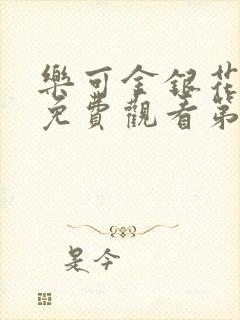 樂可金銀花
免費觀看第
是今